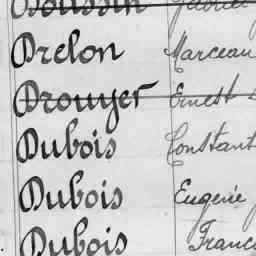 Drelon Marceau
Drouyer Ernest
Dubois Constant
Dubois Eugénie
Dubois Franc